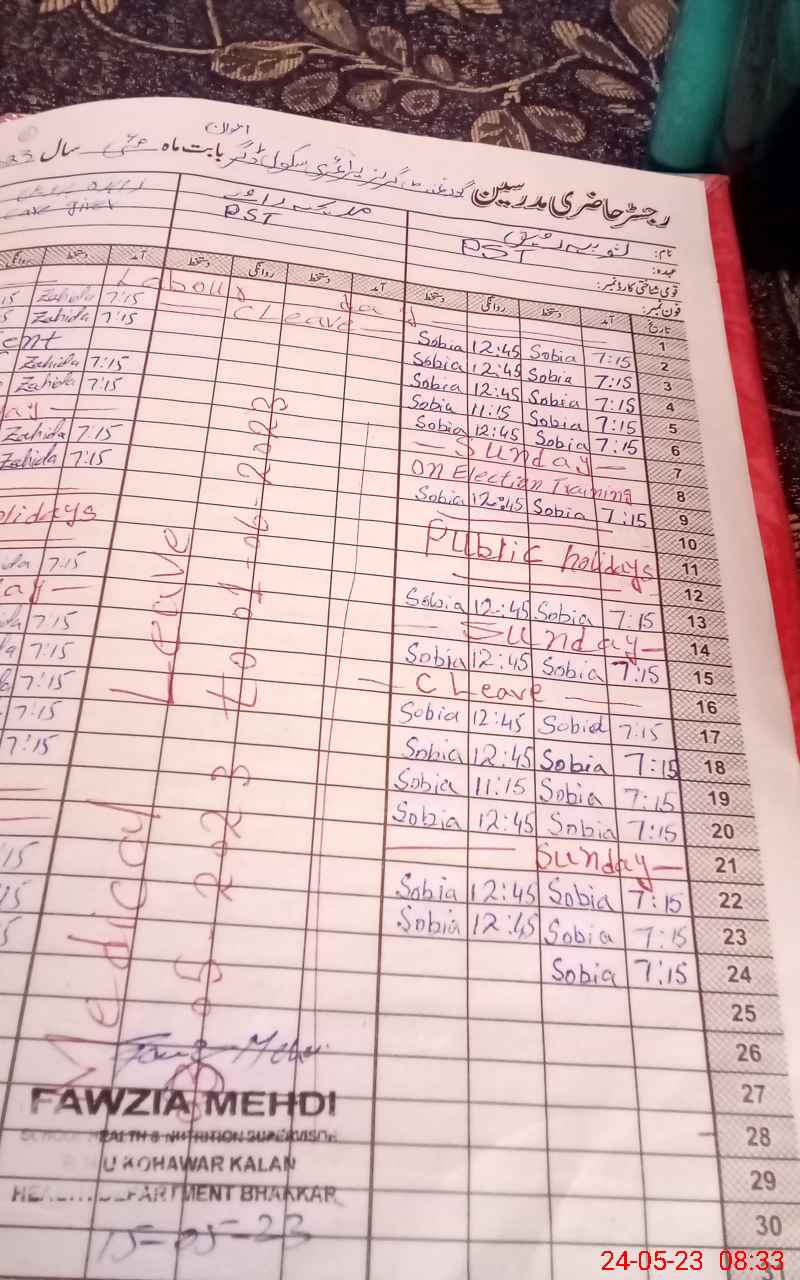 رجسٹر حاضری مدرسین گورنمنٹ گرلز پرائمری سکول بابت ماہ مئی سال
نام:
عہدہ: PST PST
قومی شناختی کارڈ نمبر:
فون نمبر:
تاریخ آمد دستخط روانگی دستخط آمد دستخط روانگی دستخط آمد دستخط روانگی
1 Labour day
2 7:15 Sobia 12:45 Sobia C Leave 7:15 Zahida
3 7:15 Sobia 12:45 Sobia 7:15 Zahida
4 7:15 Sobia 12:45 Sobia
5 7:15 Sobia 11:15 Sobia 7:15 Zahida
6 7:15 Sobia 12:45 Sobia 7:15 Zahida
7 Sunday
8 On Election Training 7:15 Zahida
9 7:15 Sobia 12:45 Sobia 7:15 Zahida
10
11 Public holidays
12
13 7:15 Sobia 12:45 Sobia 7:15
14 Sunday
15 7:15 Sobia 12:45 Sobia 7:15
16 C Leave 7:15
17 7:15 Sobia 12:45 Sobia 7:15
18 7:15 Sobia 12:45 Sobia 7:15
19 7:15 Sobia 11:15 Sobia 7:15
20 7:15 Sobia 12:45 Sobia
21 Sunday
22 7:15 Sobia 12:45 Sobia
23 7:15 Sobia 12:45 Sobia
24 7:15 Sobia
25
26
27
28
29
30
31
Medical Leave
05-2023 to 01-06-2023
FAWZIA MEHDI
SCHOOL HEALTH & NUTRITION SUPERVISOR
KOHAWAR KALAN
HEALTH DEPARTMENT BHAKKAR
15-05-23
24-05-23 08:33